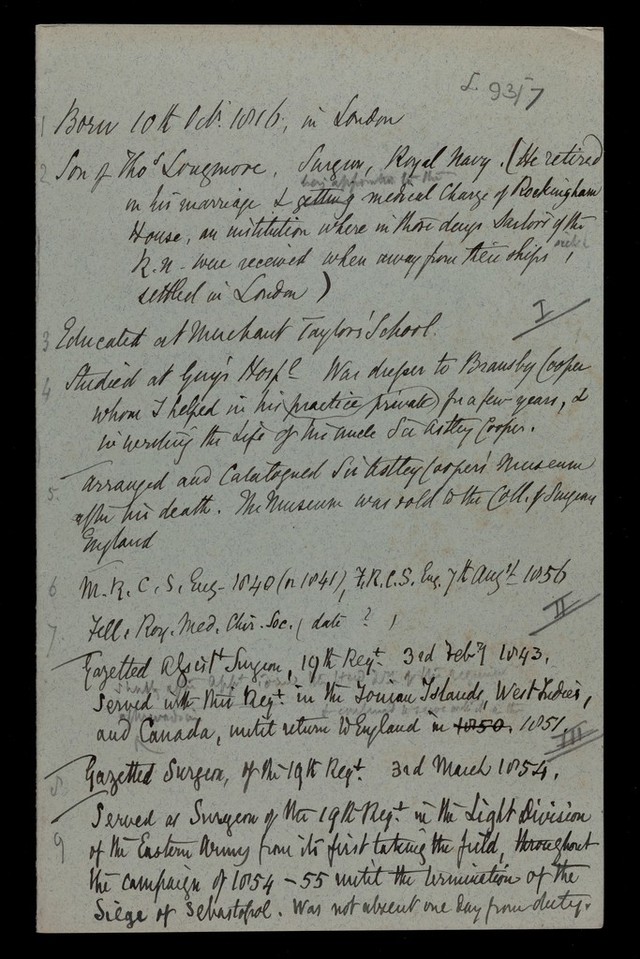 L. 93/7
1 Born 10th Octr. 1816, in London
2 Son of Thos Longmore, Surgeon, Royal Navy. (He retired
being appointed to the
on his marriage & getting medical Charge of Rockingham
House, an institution where in those days Sailors of the
R.N. were received when away from their ships,
settled in London)
I
3 Educated at Merchant Taylors' School.
4 Studied at Guy's Hospl. Was dresser to Bransby Cooper
whom I helped in his (practice private) for a few years, &
in writing the Life of his uncle Sir Astley Cooper.
5. Arranged and Catalogued Sir Astley Coopers' Museum
after his death. The Museum was sold to the Coll. of Surgeons
England
6 M.R.C.S. Eng. 1840 (or 1841), F.R.C.S. Eng. 7th Augst 1856
II
7. Fell. Roy. Med. Chir. Soc. (date ?)
Gazetted Assist Surgeon, 19th Regt. 3rd Feby 1843.
Served with this Regt. in the Ionian Islands, West Indies,
and Canada, until return to England in 1850. 1851
III
8 Gazetted Surgeon, of the 19th Regt. 3rd March 1854.
9 Served as Surgeon of the 19th Regt. in the Light Division
of the Eastern Army from its first taking the field, throughout
the campaign of 1854–55 until the termination of the
Siege of Sebastopol. Was not absent one day from duty.